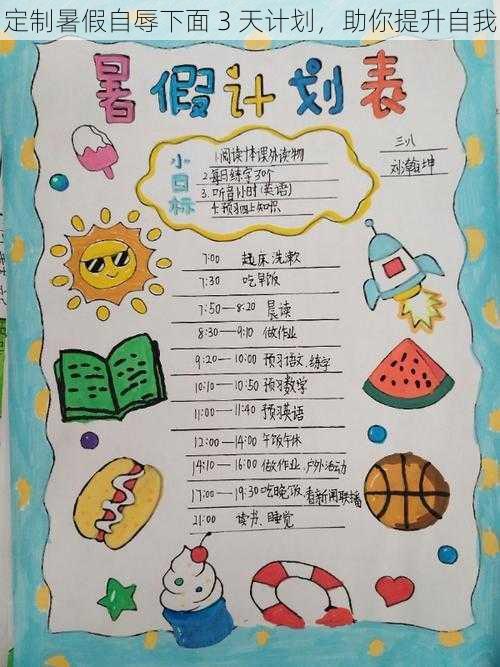 定制暑假自辱下面 3 天计划，助你提升自我
暑假计划表
小目标
1.阅读1本课外读物
2.每日练字30个
3.听音1小时(英语)
4.预习四上知识
三八
刘瀚坤
7:00 起床洗漱
7:30 吃早饭
7:50—8:20 晨读
8:30—9:10 做作业
9:20—10:00 预习语文、练字
10:10—10:50 预习数学
11:00—11:40 预习英语
12:00—14:00 午饭午休
14:10—16:00 做作业、户外活动
17:00—19:30 吃晚饭、看新闻联播
21:00 读书、睡觉